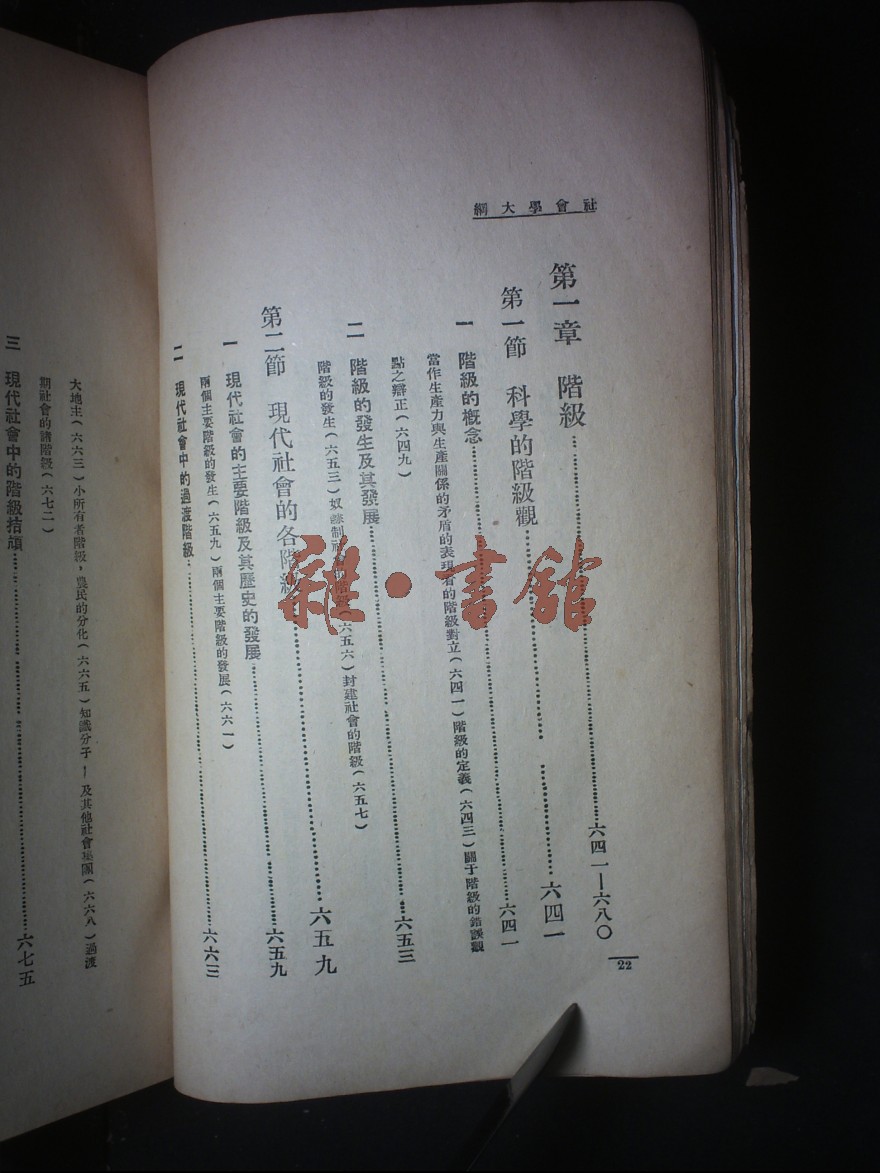 社會學大綱
第一章 階級……六四一—六八〇
第一節 科學的階級觀……六四一
一 階級的概念……六四一
當作生產力與生產關係的矛盾的表現者的階級對立(六四一)階級的定義(六四三)關于階級的錯誤觀
點之辯正(六四九)
二 階級的發生及其發展……六五三
階級的發生(六五三)奴隸制社會的階級(六五六)封建社會的階級(六五七)
第二節 現代社會的各階級……六五九
一 現代社會的主要階級及其歷史的發展……六五九
兩個主要階級的發生(六五九)兩個主要階級的發展(六六一)
二 現代社會中的過渡階級……六六三
大地主(六六三)小所有者階級,農民的分化(六六五)知識分子—及其他社會集團(六六八)過渡
期社會的諸階級(六七二)
三 現代社會中的階級拮頏……六七五
22
雜·書館